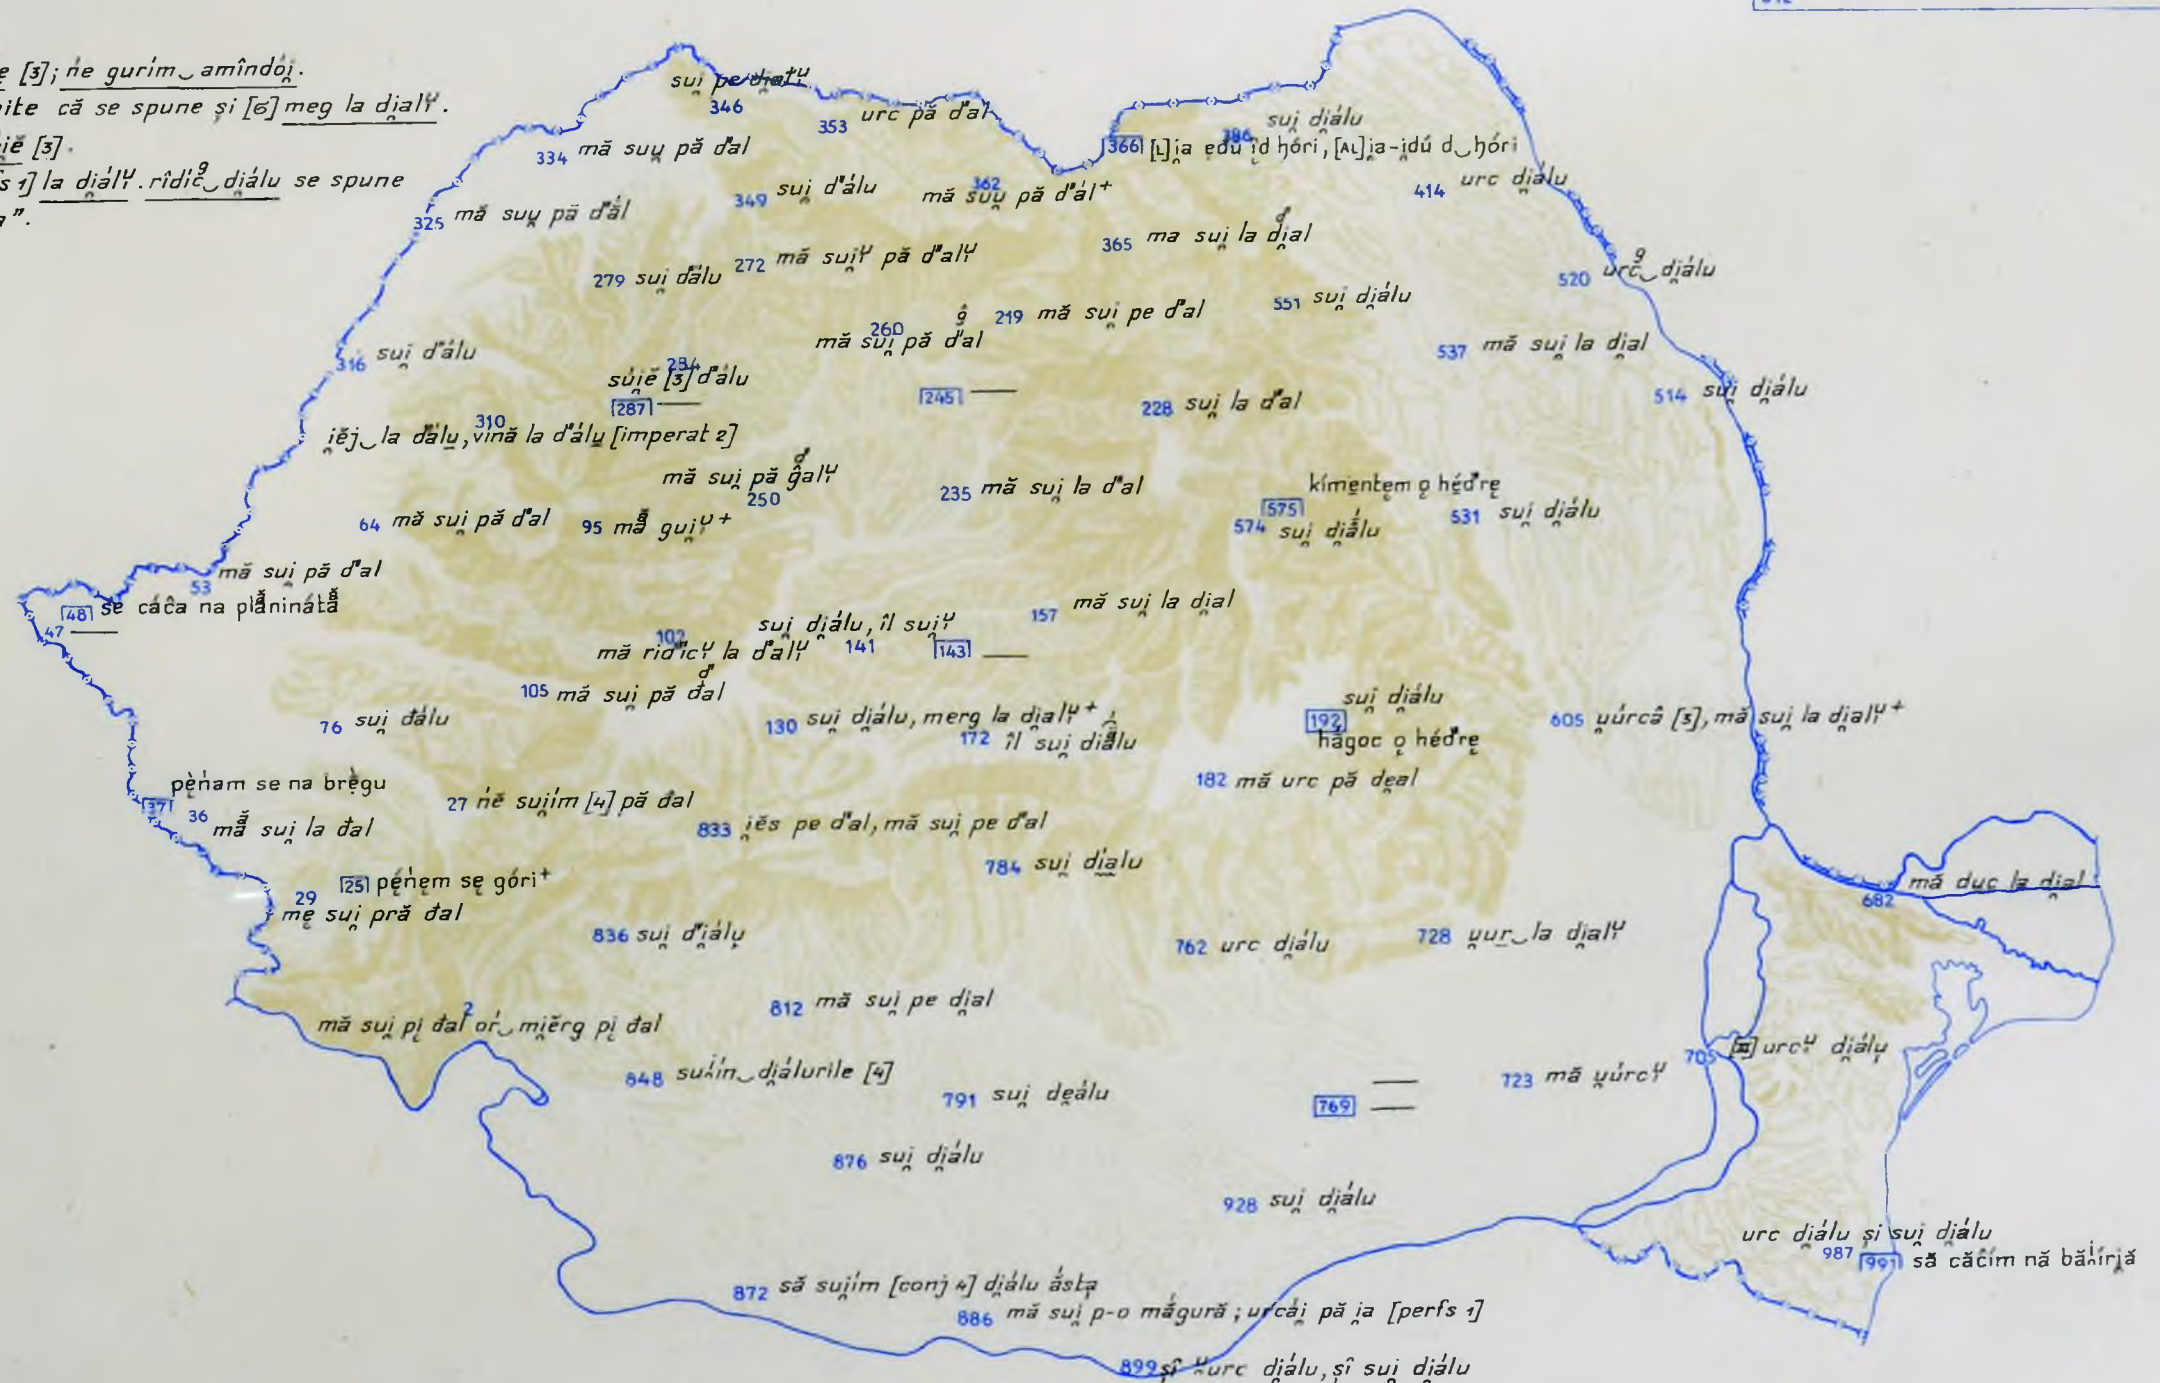 [3]; ńe gurím‿amîndói̯.
ite că se spune și [6] meg la di̯alᶙ.
i̯ĕ [3].
s 1] la di̯álᶙ. rîdíc‿di̯álu se spune
”.
sui̯ pe
346
353 urc pă d'al
334 mă suu̯ pă d'al
386 sui̯ di̯álu
366 [L] i̯a edú îd hóri, [AL] i̯a-i̯dú d‿hóri
349 sui̯ d'álu
362 mă suu̯ pă d'ál+
414 urc di̯álu
325 mă suu̯ pă d'ál
365 ma sui̯ la di̯al
272 mă sui̯ᶙ pă d'alᶙ
279 sui̯ d'álu
520 urc‿di̯álu
551 sui̯ di̯álu
219 mă sui̯ pe d'al
260 mă sui̯ pă d'al
537 mă sui̯ la di̯al
316 sui̯ d'álu
284 súi̯ĕ [3] d'álu
287 —
245 —
228 sui̯ la d'al
514 sui̯ di̯álu
310 i̯ĕj‿la d'álu, vínă la d'álu [imperat 2]
mă sui̯ pă ĝalᶙ
250
235 mă sui̯ la d'al
575 kímentem o̜ héd're̜
574 sui̯ di̯álu
531 sui̯ di̯álu
64 mă sui̯ pă d'al
95 mă gui̯ᶙ+
53 mă sui̯ pă d'al
48 se cáĉa na plăninátă
47 —
157 mă sui̯ la di̯al
141 sui̯ di̯álu, îl sui̯ᶙ
102 mă rid'icᶙ la d'alᶙ
143 —
105 mă sui̯ pă đal
76 sui̯ đálu
130 sui̯ di̯álu, merg la di̯alᶙ+
172 îl sui̯ di̯álu
sui̯ di̯álu
192 hágoc o̜ héd're̜
605 u̯úrcă [3], mă sui̯ la di̯alᶙ+
182 mă urc pă de̯al
37 pèńam se na brẹ̀gu
36 mă sui̯ la đal
27 ńĕ sui̯ím [4] pă đal
833 i̯ĕs pe d'al, mă sui̯ pe d'al
784 sui̯ di̯alu
25 pẹ́ńẹm sẹ góri+
29 mẹ sui̯ pră đal
682 mă duc la di̯al
836 sui̯ d'i̯álu̯
762 urc di̯álu
728 u̯ur‿la di̯alᶙ
812 mă sui̯ pe di̯al
2 mă sui̯ pi̜ đal or‿mi̯ĕrg pi̜ đal
705 urcᶙ di̯álu̯
848 di̯álurile [4]
723 mă u̯úrcᶙ
791 sui̯ de̯álu
—
769 —
876 sui̯ di̯álu
928 sui̯ di̯álu
987 urc di̯álu și sui̯ di̯álu
991 să căĉím nă
872 să sui̯ím [conj 4] di̯álu ásta̜
886 mă sui̯ p-o mắgură; urcái̯ pă i̯a [perfs 1]
899 șî ᵘurc di̯álu, șî sui̯ di̯álu